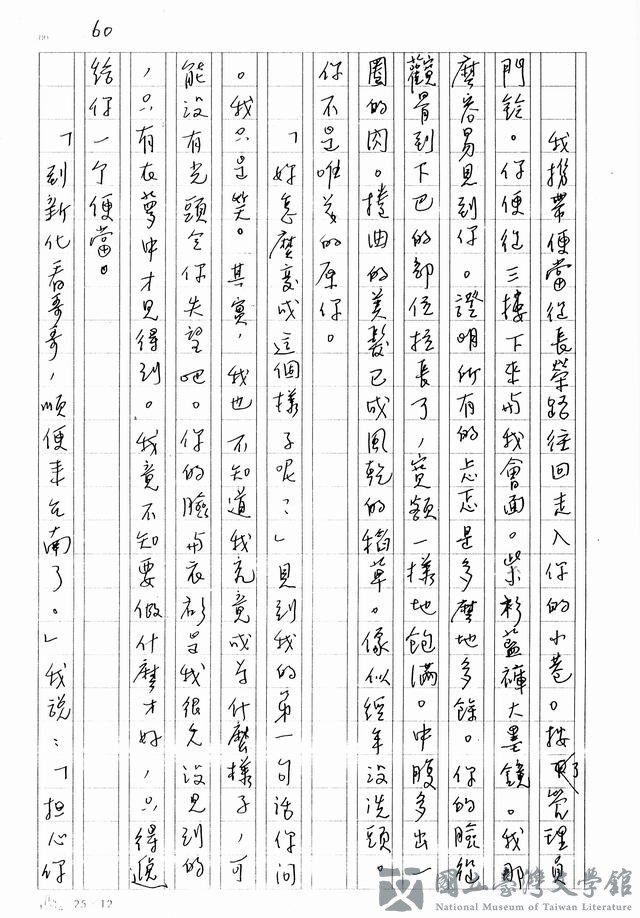 60
我攜帶便當從長榮路往回走入你的小巷。按了管理員
門鈴。你便從三樓下來與我會面。紫衫藍褲大墨鏡。我那
麼容易見到你。證明所有的忐忑是多麼地多餘。你的臉從
觀骨到下巴的部位拉長了，寬額一樣地飽滿。中腹多出一
圈的肉。捲曲的美髮已成風乾的稻草。像似經年沒洗頭。
你不是唯美的原你。
「妳怎麼變成這個樣子呢？」見到我的第一句話你問
。我只是笑。其實，我也不知道我究竟成为什麼樣子，可
能沒有光頭令你失望吧。你的臉與衣衫是我很久沒見到的
，只有在夢中才見得到。我竟不知要做什麼才好，只得遞
給你一个便當。
「到新化看哥哥，順便來台南了。」我說：「担心你
25 12
國立臺灣文學館
National Museum of Taiwan Literature